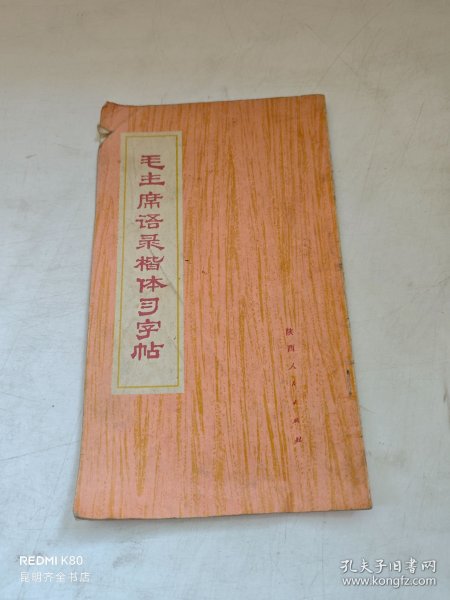 毛主席语录楷体习字帖
陕西人民出版社
REDMI K80
昆明齐全书店
孔夫子旧书网
www.kongfz.com